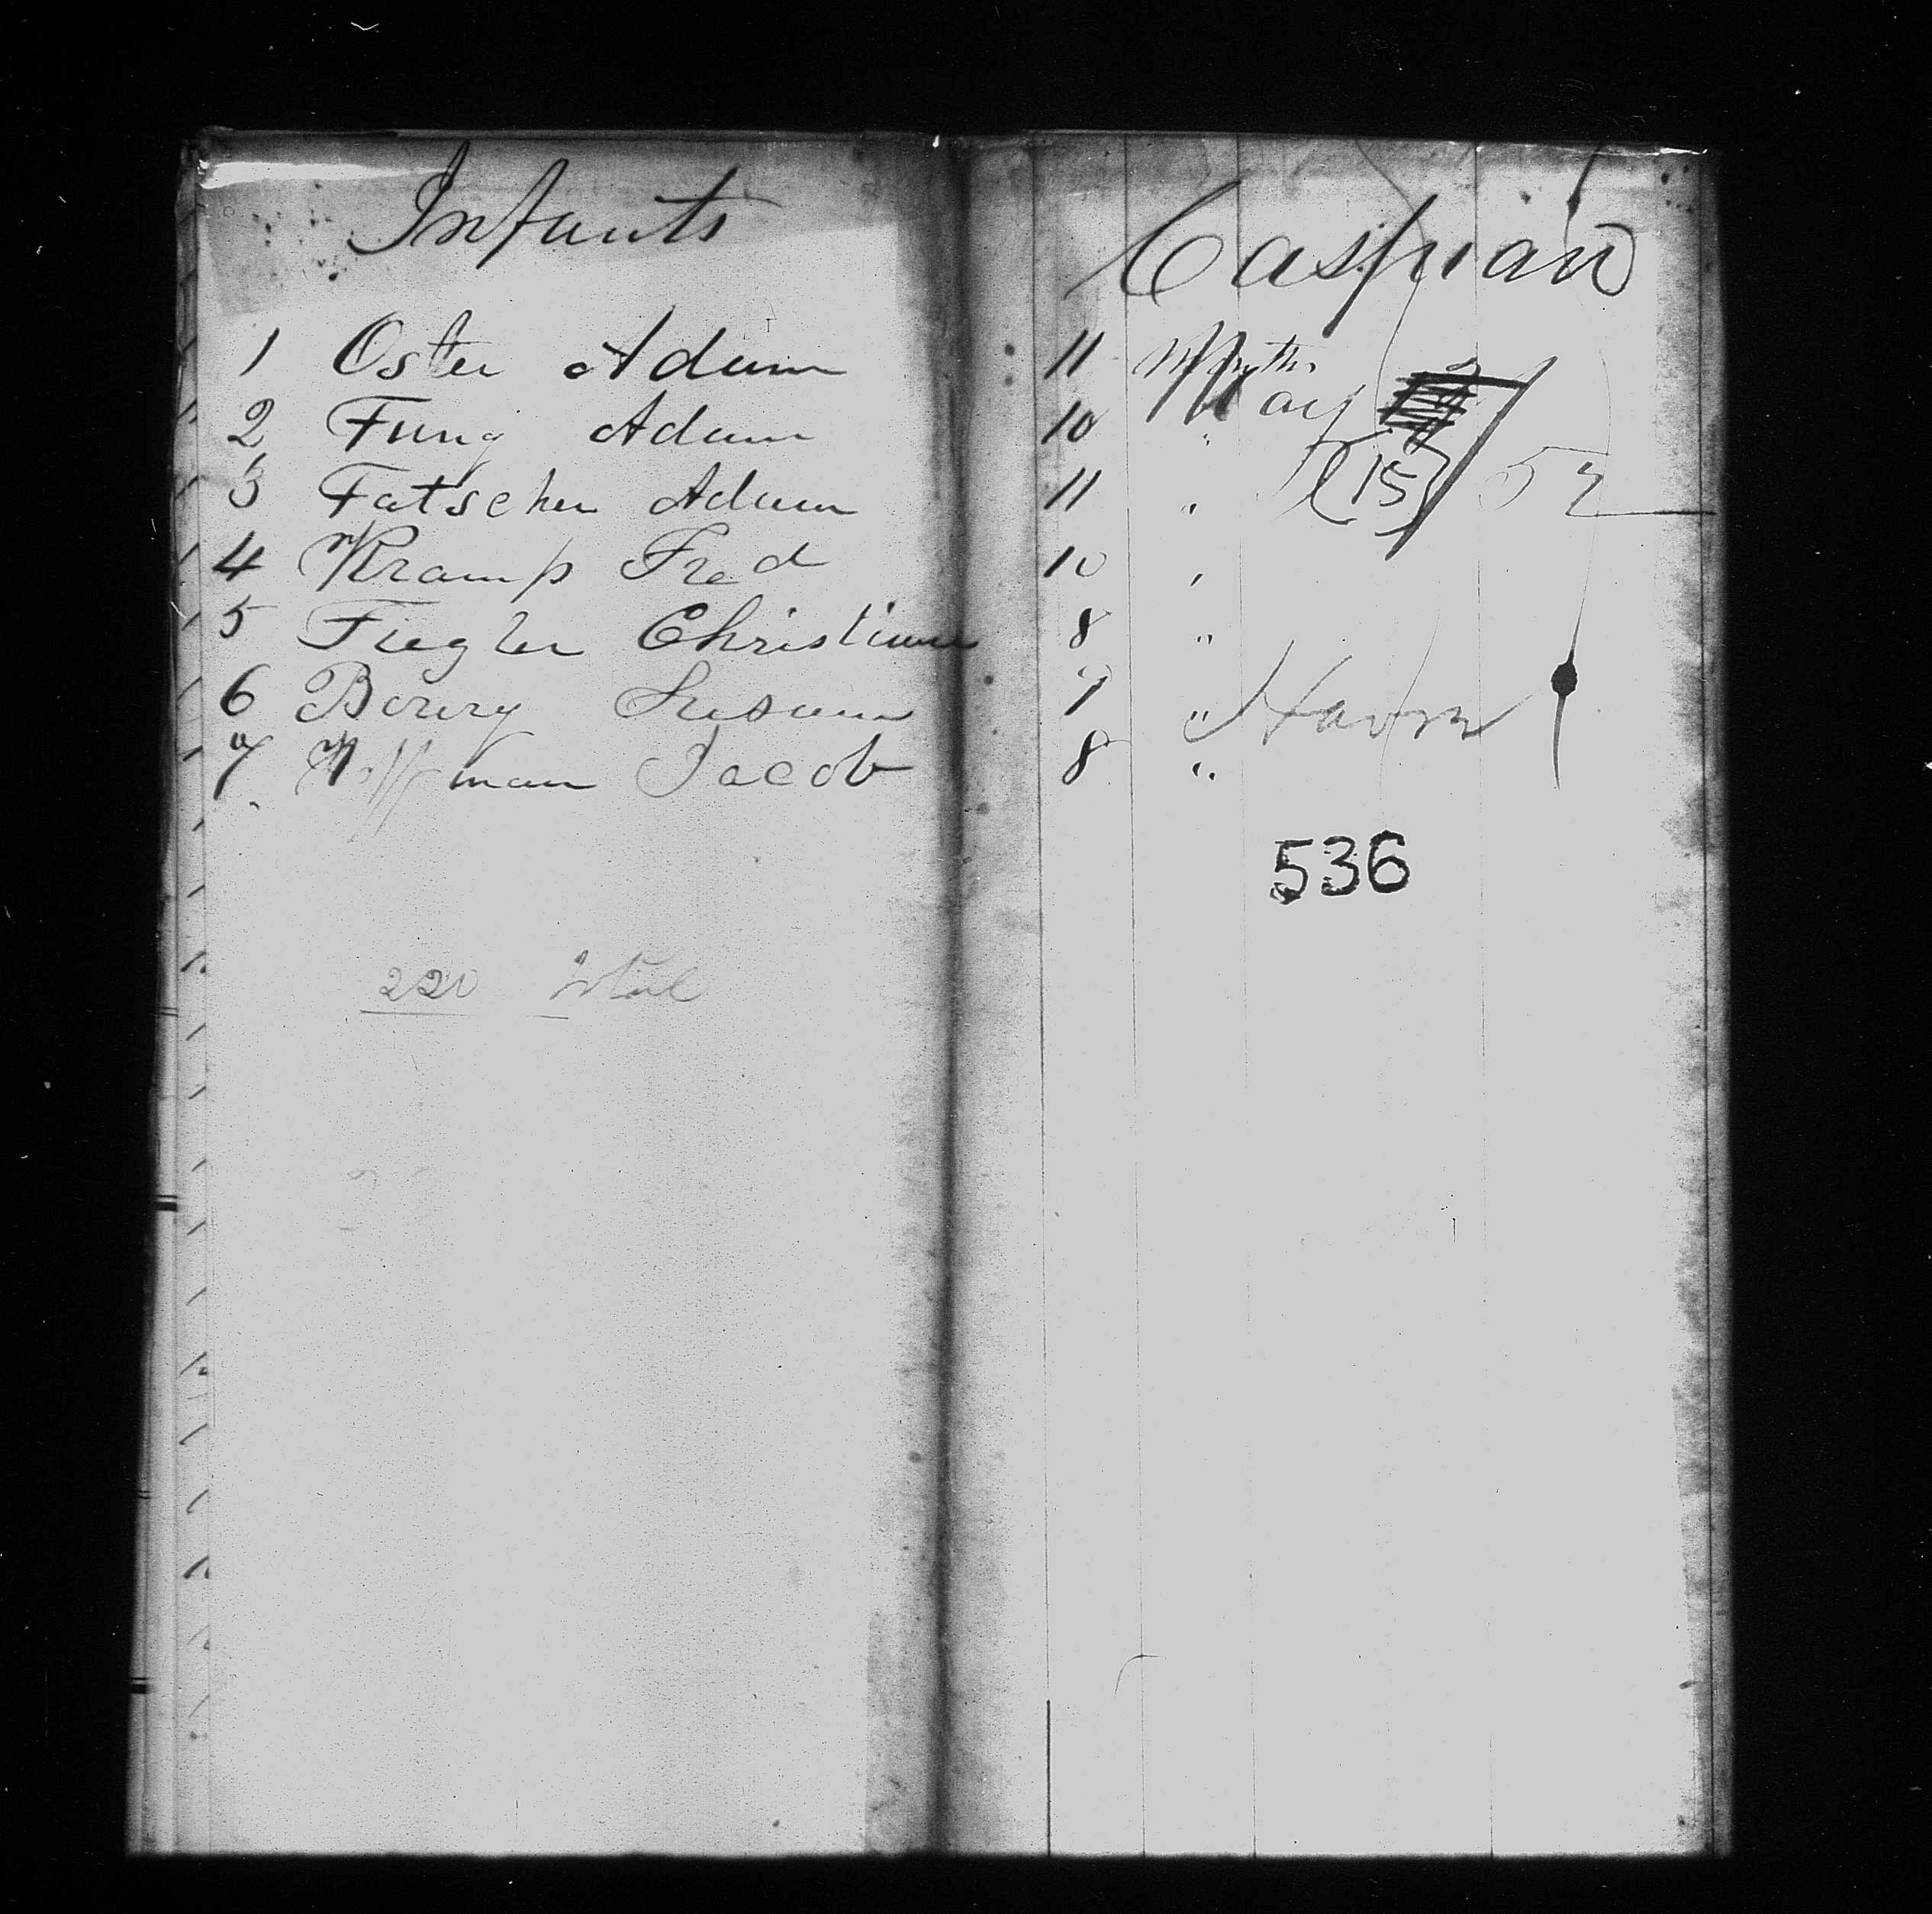 Infants
1 Oster Adam
2 Fung Adam
3 Fatscher Adam
4 Kramp Fred
5 Fiegler Christian
6 Susann
7 Jacob
220 total
Caspian
11 Months
May
10 "
(15) 52
11 "
10 "
8 "
7 " Havre
8 "
536